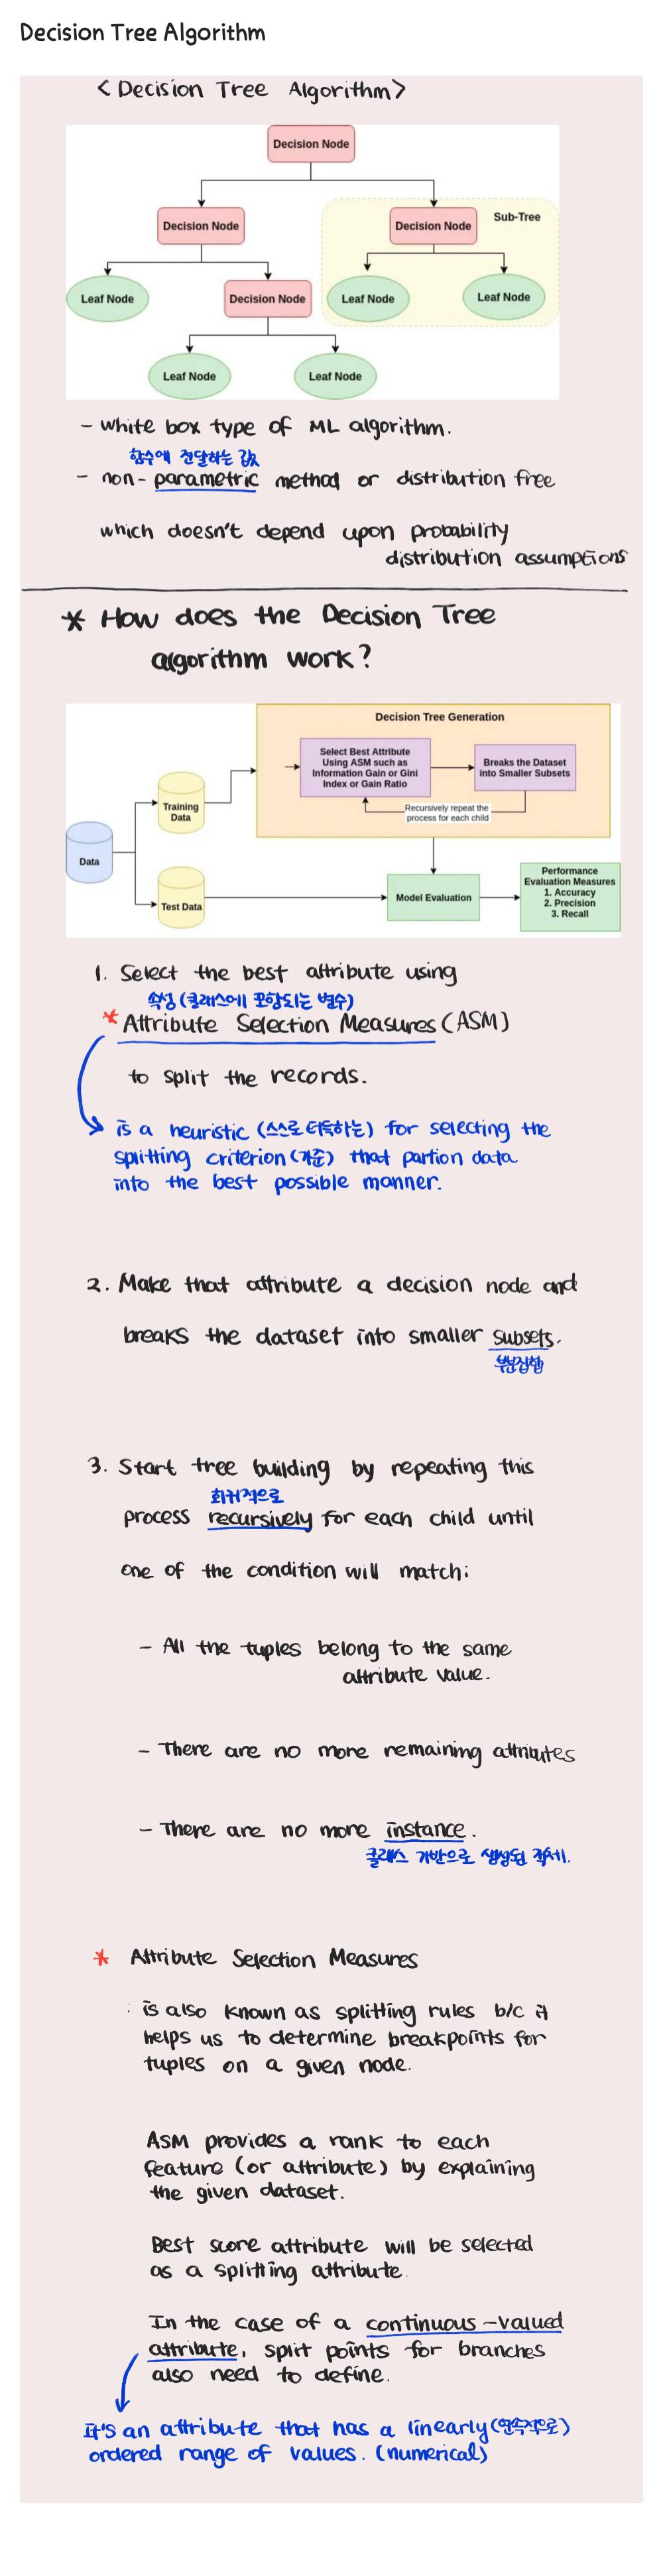 Decision Tree Algorithm
<Decision Tree Algorithm>
Decision Node
Decision Node
Decision Node
Sub-Tree
Leaf Node
Decision Node
Leaf Node
Leaf Node
Leaf Node
Leaf Node
- white box type of ML algorithm.
함수에 전달하는 값
- non-parametric method or distribution free
which doesn't depend upon probability
distribution assumptions
* How does the Decision Tree
algorithm work?
Decision Tree Generation
Select Best Attribute
Using ASM such as
Information Gain or Gini
Index or Gain Ratio
Breaks the Dataset
into Smaller Subsets
Recursively repeat the
process for each child
Training
Data
Data
Test Data
Model Evaluation
Performance
Evaluation Measures
1. Accuracy
2. Precision
3. Recall
1. Select the best attribute using
속성 (클래스에 포함되는 변수)
* Attribute Selection Measures (ASM)
to split the records.
is a heuristic (스스로 터득하는) for selecting the
splitting criterion (기준) that partion data
into the best possible manner.
2. Make that attribute a decision node and
breaks the dataset into smaller subsets.
부분집합
3. Start tree building by repeating this
회귀적으로
process recursively for each child until
one of the condition will match:
- All the tuples belong to the same
attribute value.
- There are no more remaining attributes
- There are no more instance.
클래스 기반으로 생성된 객체.
* Attribute Selection Measures
: is also known as splitting rules b/c it
helps us to determine breakpoints for
tuples on a given node.
ASM provides a rank to each
feature (or attribute) by explaining
the given dataset.
Best score attribute will be selected
as a splitting attribute.
In the case of a continuous-valued
attribute, split points for branches
also need to define.
It's an attribute that has a linearly (연속적으로)
ordered range of values. (numerical)